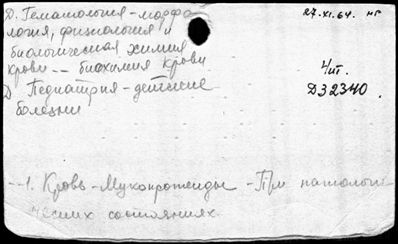 Д. Гематология - морфо
логия, физиология и
биологическая химия
крови -- биохимия крови
Д Педиатрия - детские
болезни
27.XI.64. нг
4/III.
Д32340.
--1. Кровь - Мукопротеиды - При патологи
ческих состояниях.